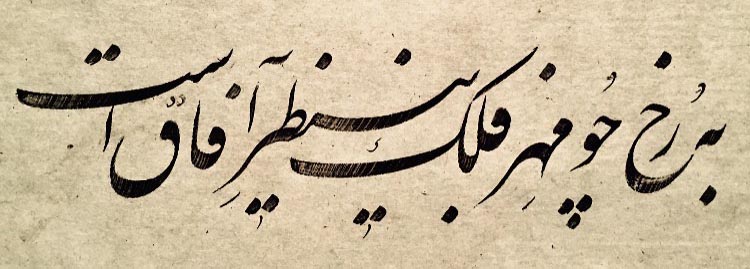 به رُخ چُو مِهرِ فلک بی‌نظیرِ آفاق است